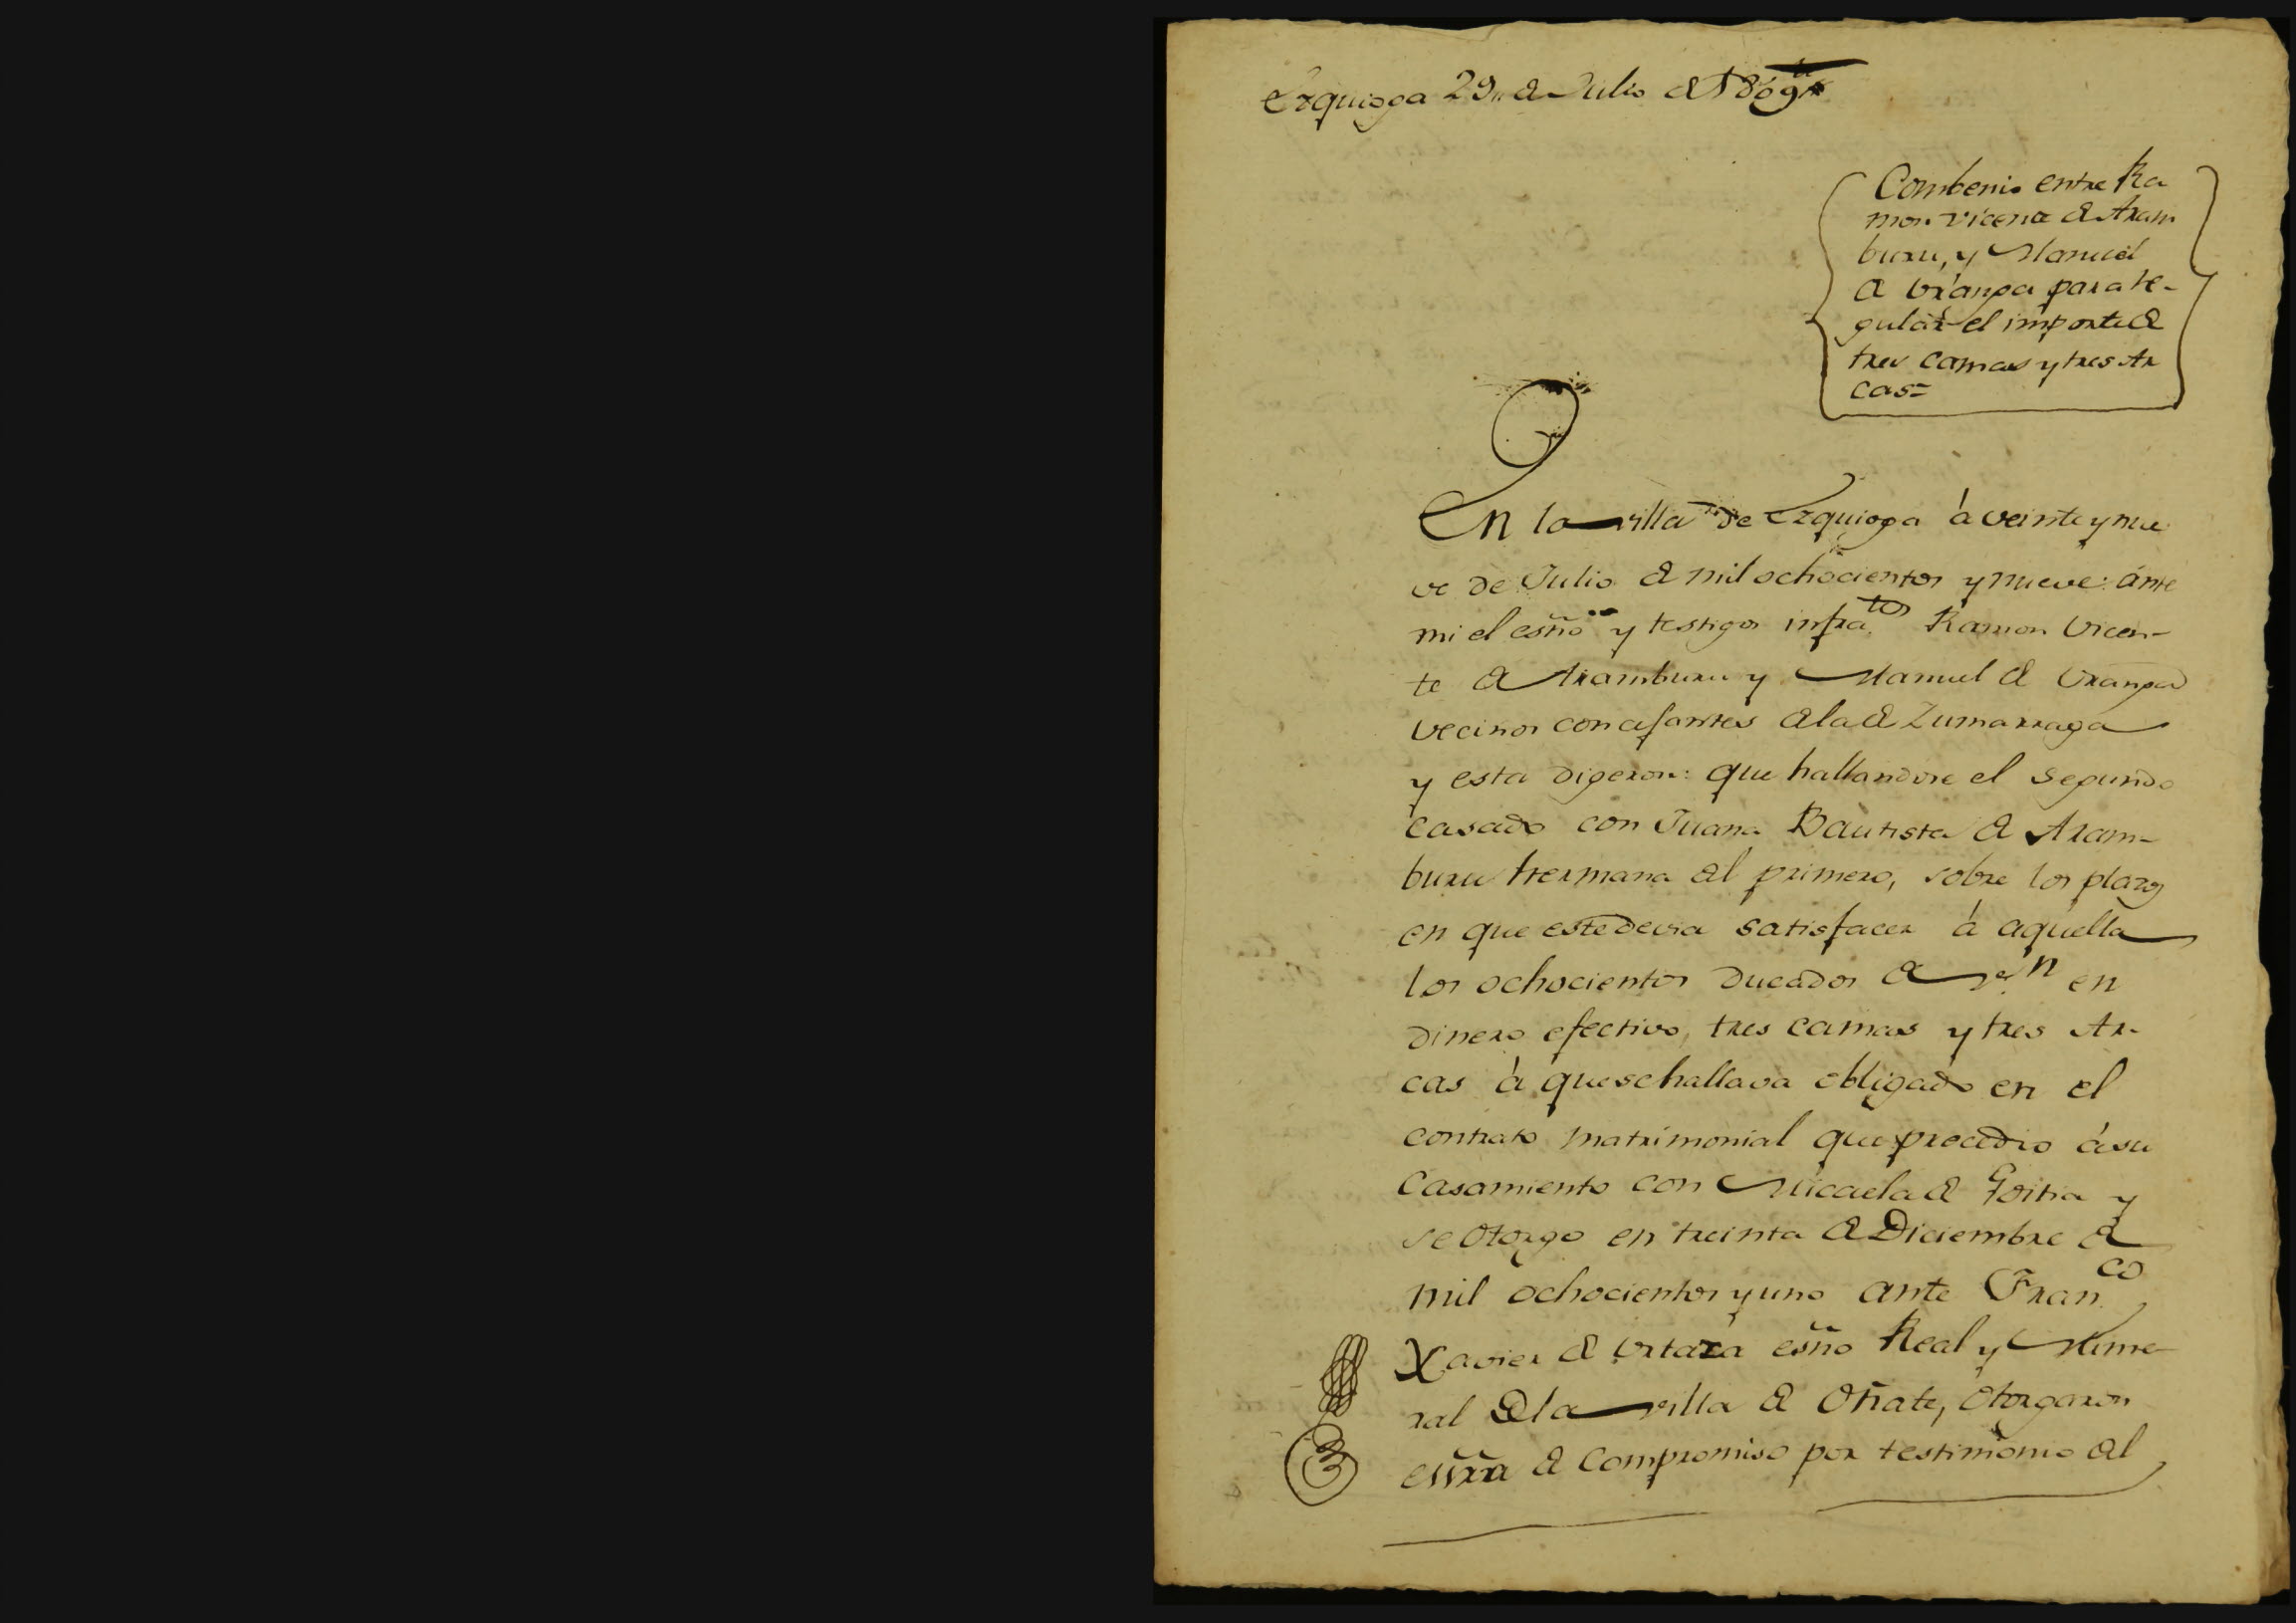 Ezquioga 29,, de Julio de 1809
Combenio entre Ra
mon Vicente de Aram
buru, y Manuel
de Uranga para re-
gular el importe de
tres camas y tres Ar
cas=
En la villa de Ezquioga á veinte y nue
ve de Julio de mil ochocientos y nueve: ante
mi el esño y testigos infra.tos Ramon Vicen-
te de Aramburu y Manuel de Uranga
vecinos concejantes de la de Zumarraga
y esta digeron: que hallandose el segundo
casado con Juana Bautista de Aram-
buru hermana del primero, sobre los plazos
en que este devia satisfacer á aquella
los ochocientos ducados de v.n en
dinero efectivo, tres camas y tres Ar-
cas á que se hallava obligado en el
contrato matrimonial que precedio á su
Casamiento con Micaela de Goitia y
se otorgo en treinta de Diciembre de
mil ochocientos y uno ante Fran.co
Xavier de Urtaza esño Real y Nume
ral de la villa de Oñate, otorgaron
essra de Compromiso por testimonio del